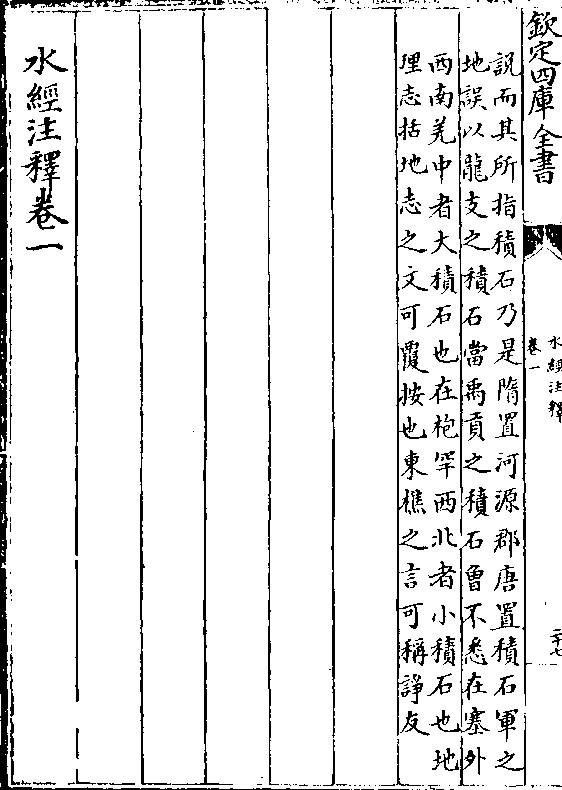 欽定四庫全書
水經注釋
卷一
二十七
說而其所指積石乃是隋置河源郡唐置積石軍之
地誤以龍支之積石當禹貢之積石曾不悉在塞外
西南羌中者大積石也在枹罕西北者小積石也地
理志括地志之文可覆按也東樵之言可稱諍友
水經注釋卷一